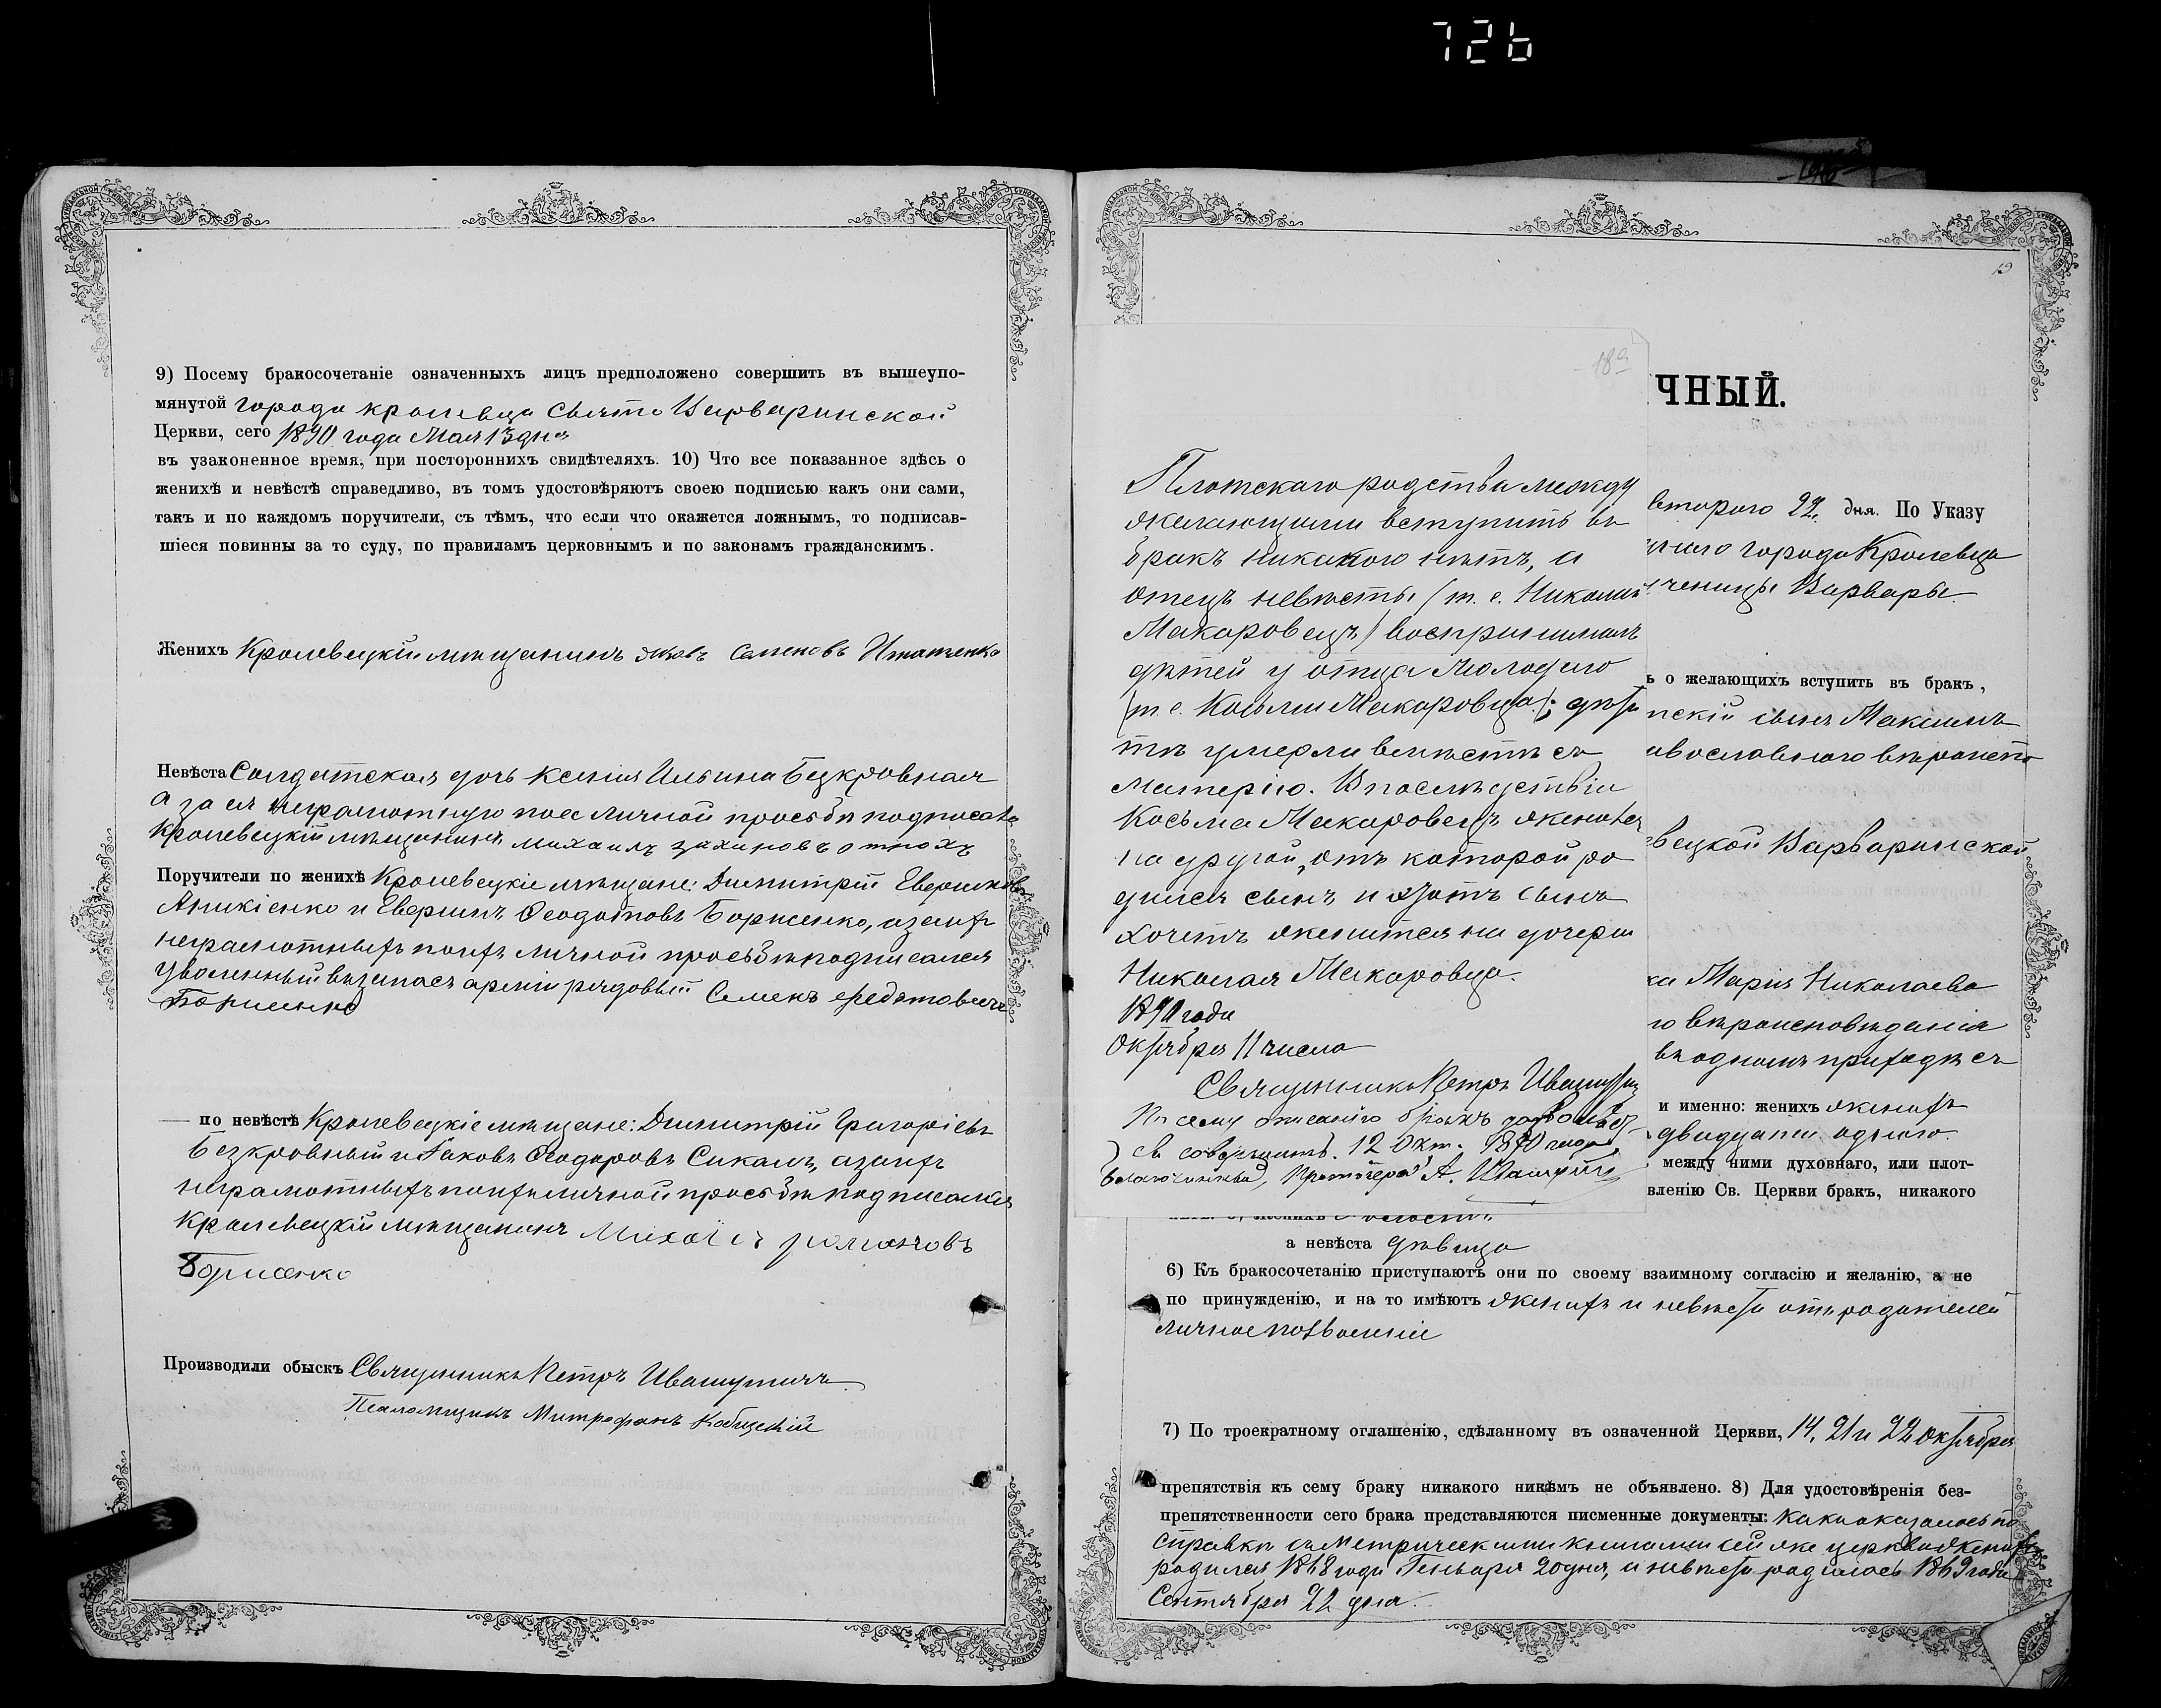 726
9) Посему бракосочетаніе означенныхъ лицъ предположено совершить въ вышеупо-
мянутой города Кролевца Свято Варваринской
Церкви, сего 1890 года Мая 13 дня
въ узаконенное время, при постороннихъ свидѣтеляхъ. 10) Что все показанное здѣсь о
женихѣ и невѣстѣ справедливо, въ томъ удостовѣряютъ своею подписью какъ они сами,
такъ и по каждомъ поручители, съ тѣмъ, что если что окажется ложнымъ, то подписав-
шіеся повинны за то суду, по правиламъ церковнымъ и по законамъ гражданскимъ.
Женихъ Кролевецкій мѣщанинъ Яковъ Семеновъ Игнатенко
Невѣста Солдатская дочь Ксенія Ильина Безкровная
а за ея неграмотную по ея личной просьбѣ подписалъ
Кролевецкій мѣщанинъ Михаилъ
Поручители по женихѣ Кролевецкіе мѣщане: Димитрій
Аникіенко и Θеодотовъ Борисенко, а за ихъ
неграмотныхъ по ихъ личной просьбѣ подписался
уволенный въ запасъ арміи рядовый Семенъ
Борисенко
— по невѣстѣ Кролевецкіе мѣщане: Димитрій Григоріевъ
Безкровный и Іаковъ Θеодоровъ Сикалъ, а за ихъ
неграмотныхъ по ихъ личной просьбѣ подписался
Кролевецкій мѣщанинъ Михаилъ Романовъ
Борисенко
Производили обыскъ Священникъ Петръ Ивашутичъ
Псаломщикъ Митрофанъ
Плотскаго родства между
желающими вступить въ
бракъ никакого нѣтъ, а
отецъ невѣсты (т. е. Николай
Макаровецъ) воспринималъ
дѣтей у отца молодаго
(т. е. Косьмы Макаровца); дѣти
тѣ умерли вмѣстѣ съ
матерію. Впослѣдствіи
Косьма Макаровецъ женился
на другой, отъ которой ро
дился сынъ и этотъ сынъ
хочетъ женится на дочери
Николая Макаровца.
1890 года
Октября 11 числа
Священникъ Петръ Ивашутичъ
По сему описанію бракъ дозволяет-
ся совершить. 12 Окт. 1890 года
Благочинный, Протоіерей А.
ЧНЫЙ.
второго 22. дня. По Указу
города Кролевца
ченицы Варвары.
ь о желающихъ вступить въ бракъ,
сынъ Максимъ
авославнаго вѣроисп
вецкой Варваринской
ка Марія Николаева
го вѣроисповѣданія
въ одномъ приходѣ съ
и именно: женихъ женихъ
двадцати одного.
между ними духовнаго, или плот-
вленію Св. Церкви бракъ, никакого
а невѣста дѣвица
6) Къ бракосочетанію приступаютъ они по своему взаимному согласію и желанію, а не
по принужденію, и на то имѣютъ женихъ и невѣста отъ родителей
личное позволеніе
7) По троекратному оглашенію, сдѣланному въ означенной Церкви, 14, 21 и 22 Октября
препятствія къ сему браку никакого никѣмъ не объявлено. 8) Для удостовѣренія без-
препятственности сего брака представляются писменные документы: какъ оказалось по
справкѣ съ метрическими книгами сей же церкви женихъ
родился 1868 года Генваря 20 дня, а невѣста родилась 1869 года
Сентября 22 дня.